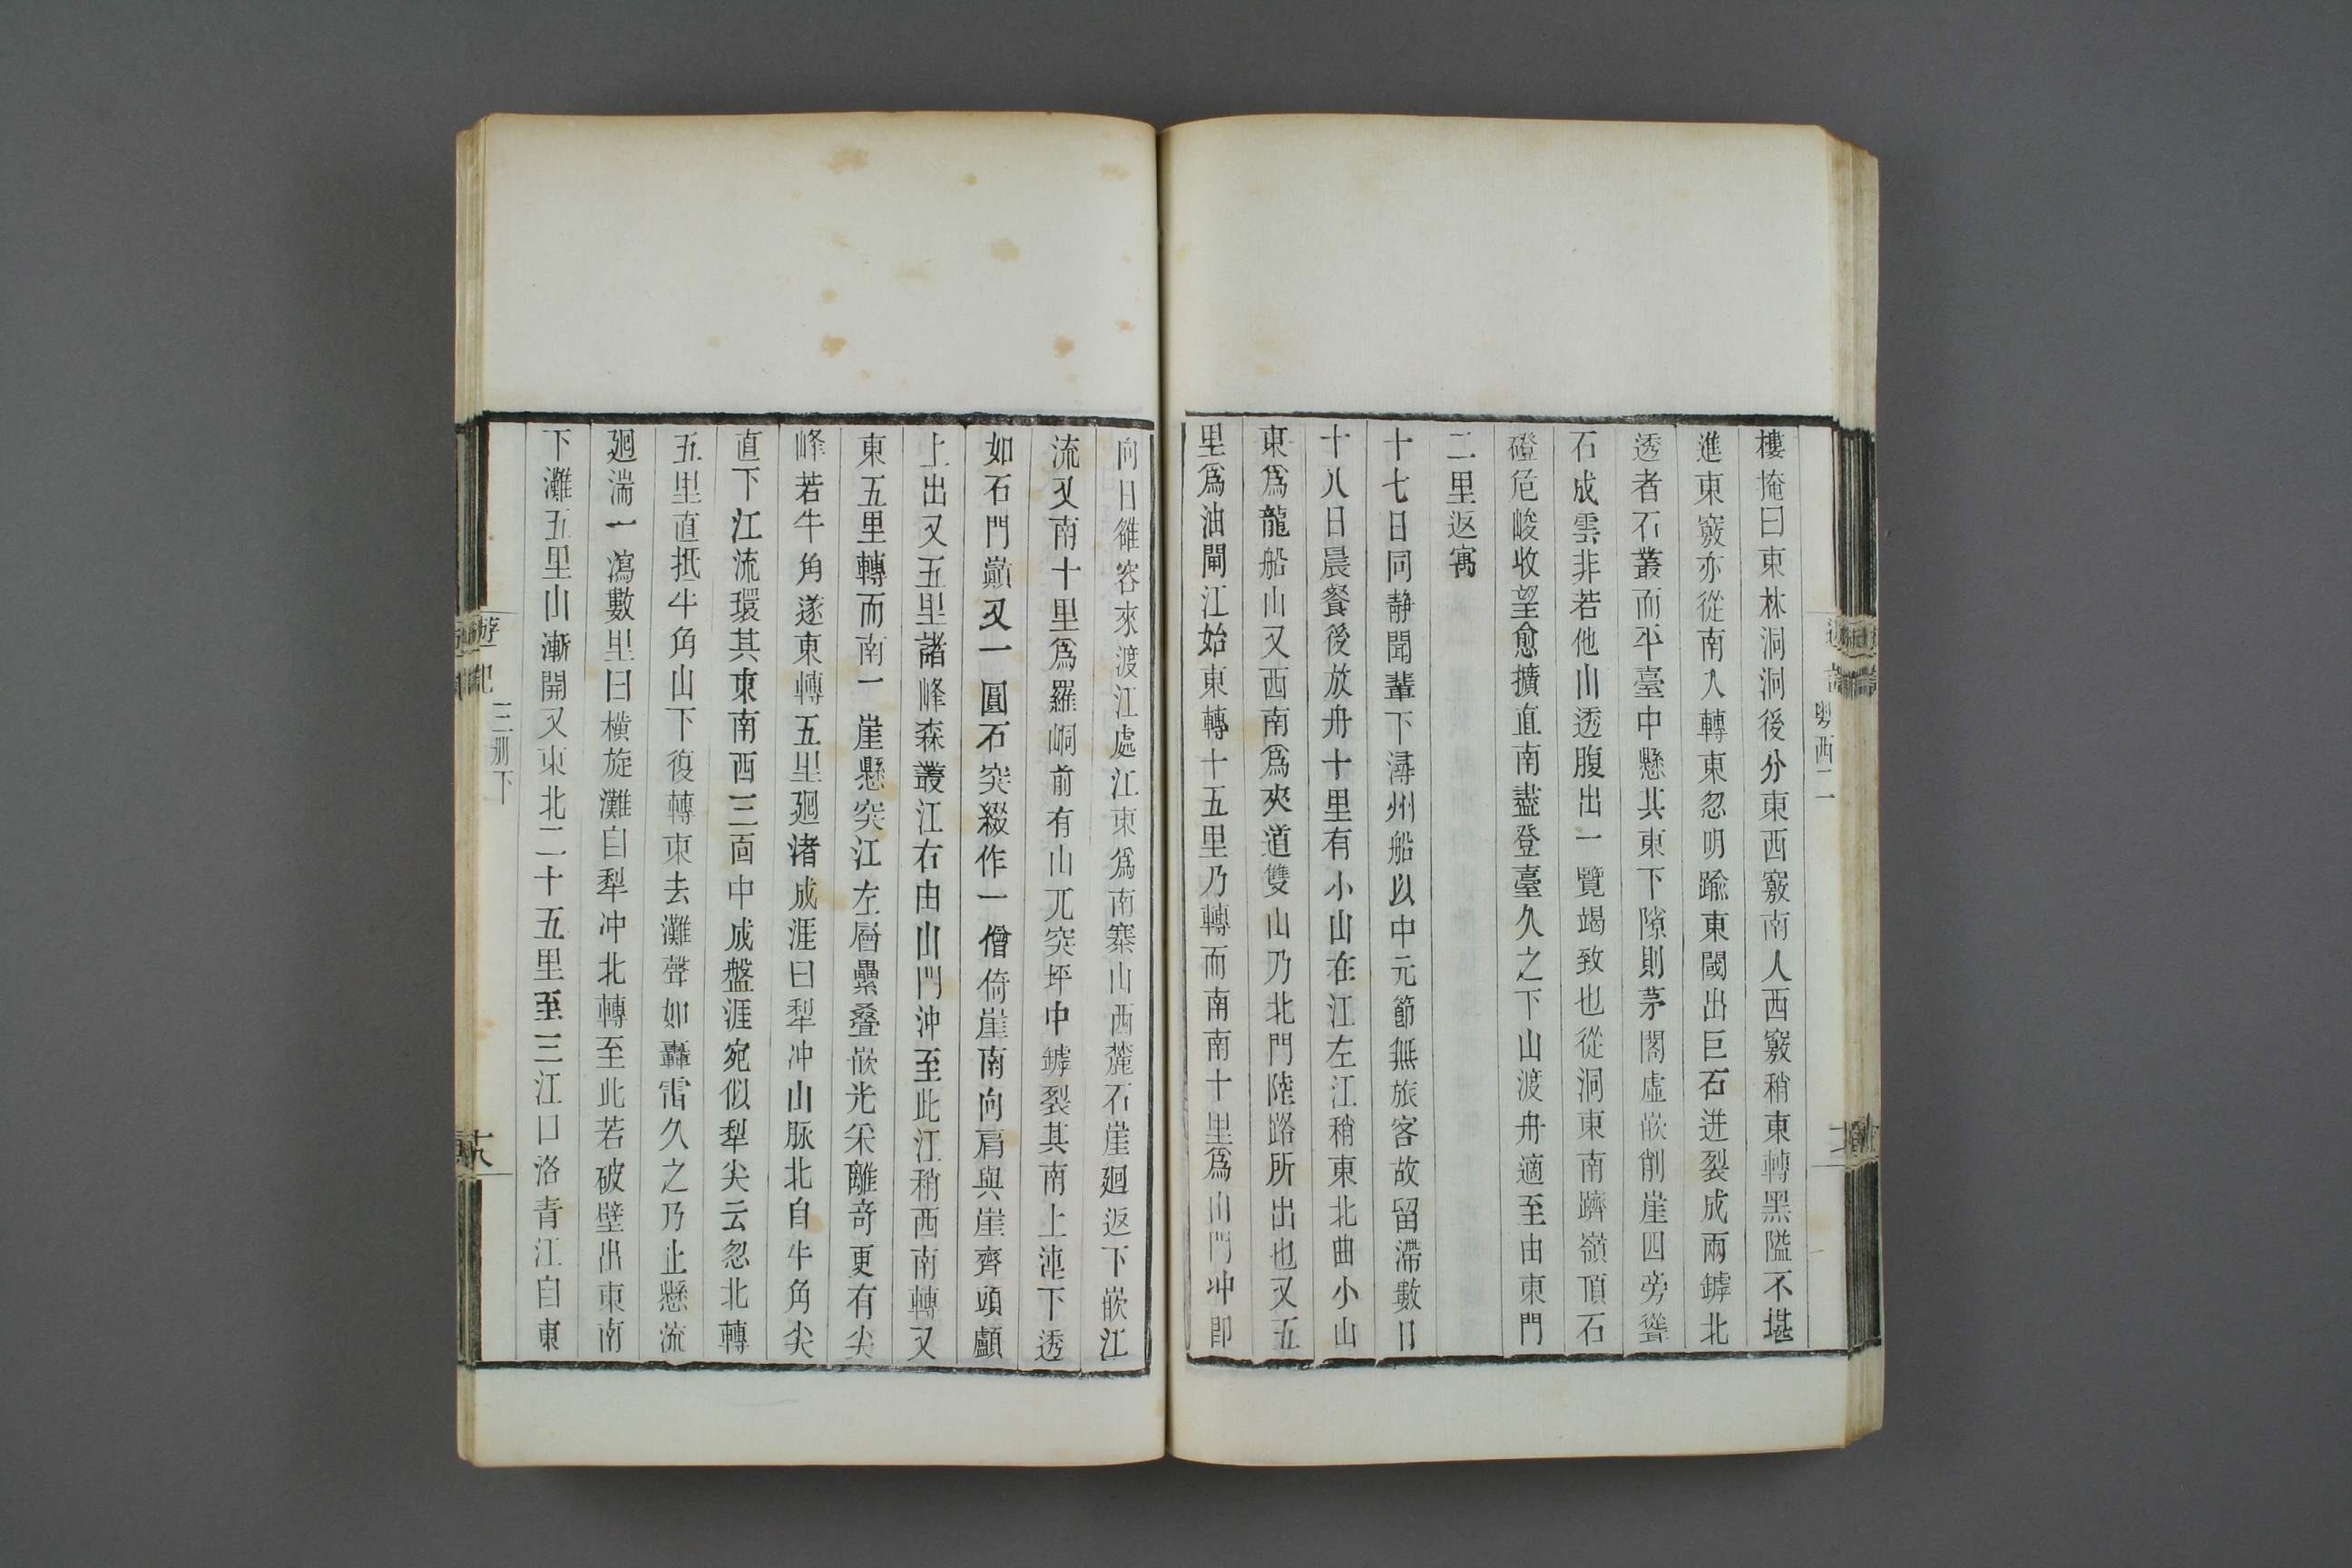 樓掩曰東林洞洞後分東西竅南人西竅稍東轉黑隘不堪
進東竅亦從南入轉東忽明踰東閾出巨石迸裂成兩罅北
透者石叢而平臺中懸其東下隙則茅閣虛嵌削崖四旁聳
石成雲非若他山透腹出一覽竭致也從洞東南躋嶺頂石
磴危峻收望愈擴直南盡登臺久之下山渡舟適至由東門
二里返寓
十七日同靜聞輩下潯州船以中元節無旅客故留滯數日
十八日晨餐後放舟十里有小山在江左江稍東北曲小山
東爲龍船山又西南爲夾道雙山乃北門陸路所出也又五
里爲油閘江始東轉十五里乃轉而南南十里爲山門冲卽
向日雒容來渡江處江東爲南寨山西麓石崖廻返下嵌江
流又南十里爲羅峒前有山兀突坪中罅裂其南上連下透
如石門巔又一圓石突綴作一僧倚崖南向肩與崖齊頭顱
上出又五里諸峰森叢江右由山門冲至此江稍西南轉又
東五里轉而南一崖懸突江左層纍叠嵌光采離奇更有尖
峰若牛角遂東轉五里廻渚成涯曰犁冲山脉北自牛角尖
直下江流環其東南西三面中成盤涯宛似犁尖云忽北轉
五里直抵牛角山下復轉東去灘聲如轟雷久之乃止懸流
廻湍一瀉數里曰橫旋灘自犁冲北轉至此若破壁出東南
下灘五里山漸開又東北二十五里至三江口洛青江自東
遊記 三册下 十六